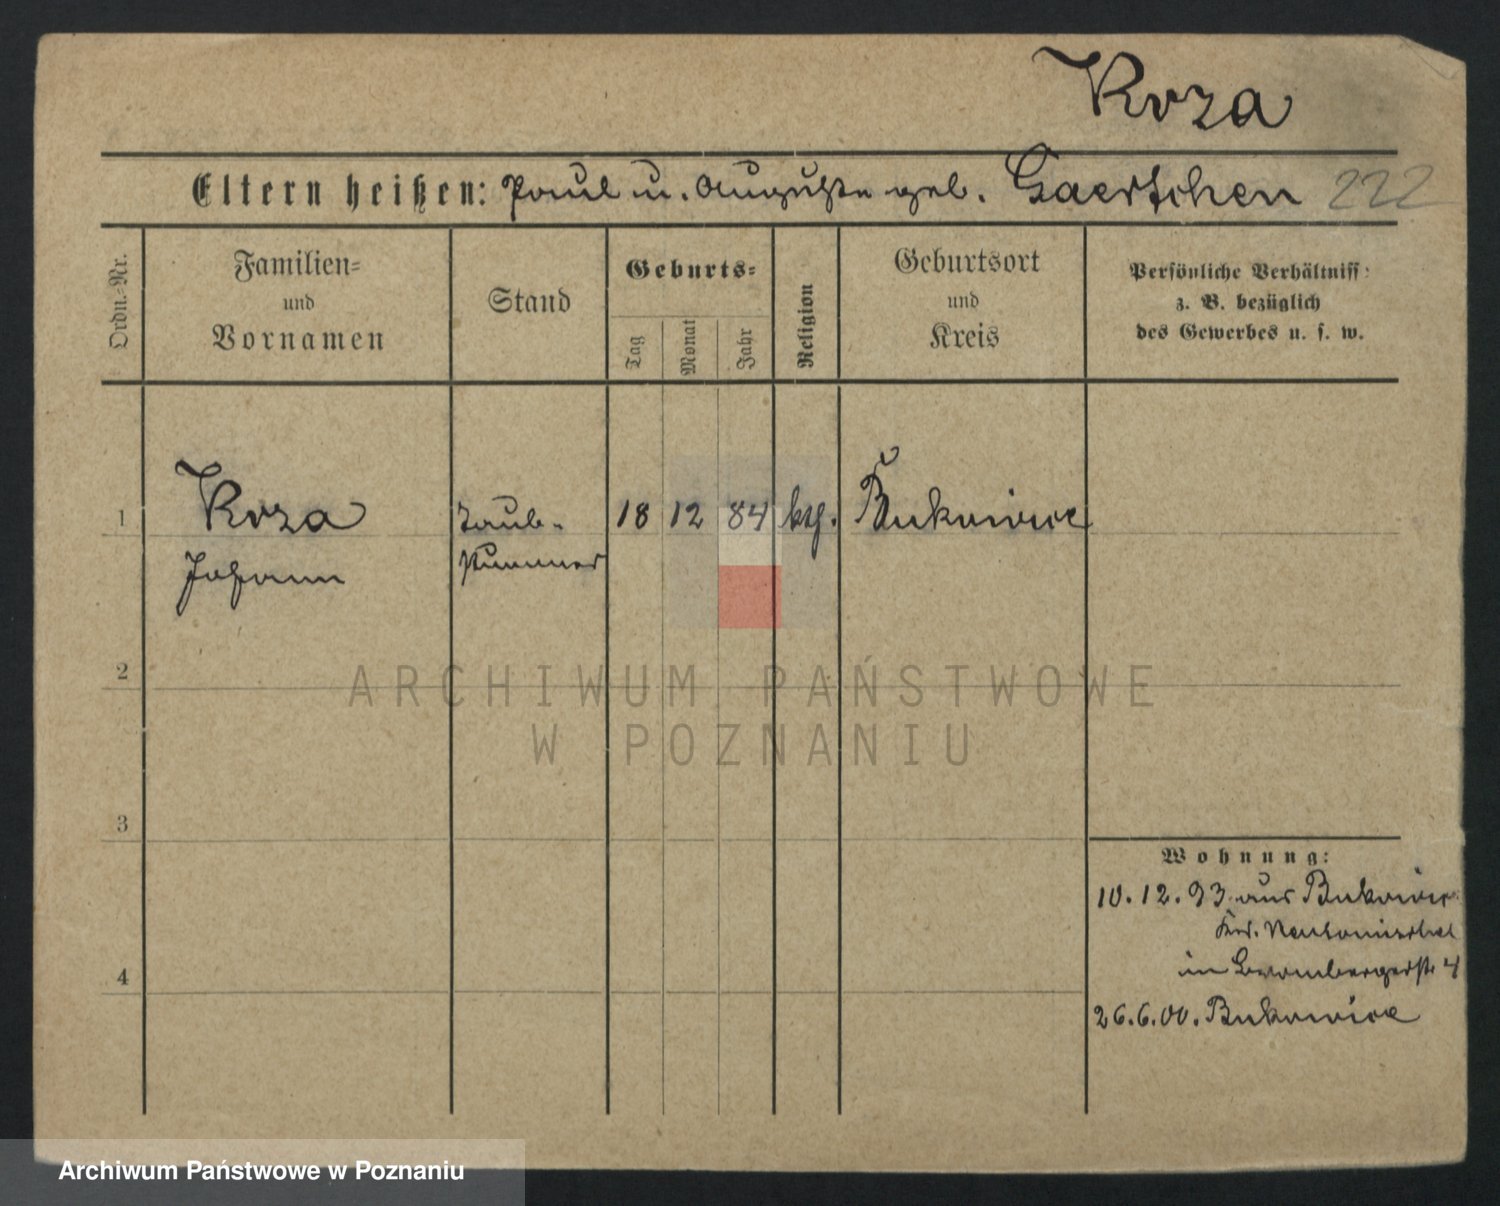 Koza
Eltern heißen: Paul u. Auguste geb. Gaertchen 222
Ordn.-Nr.
Familien- und Vornamen
Stand
Geburts-
Tag
Monat
Jahr
Religion
Geburtsort und Kreis
Persönliche Verhältniss
z. B. bezüglich
des Gewerbes u. s. w.
1 Koza Taub- 18 12 84 kth. Bukowice
Johann stummer
2
3
4
Wohnung:
10.12.93 aus Bukowice
Krs. Neutomischel
in Brombergerst. 4
26.6.00. Bukowice
ARCHIWUM PAŃSTWOWE
W POZNANIU
Archiwum Państwowe w Poznaniu